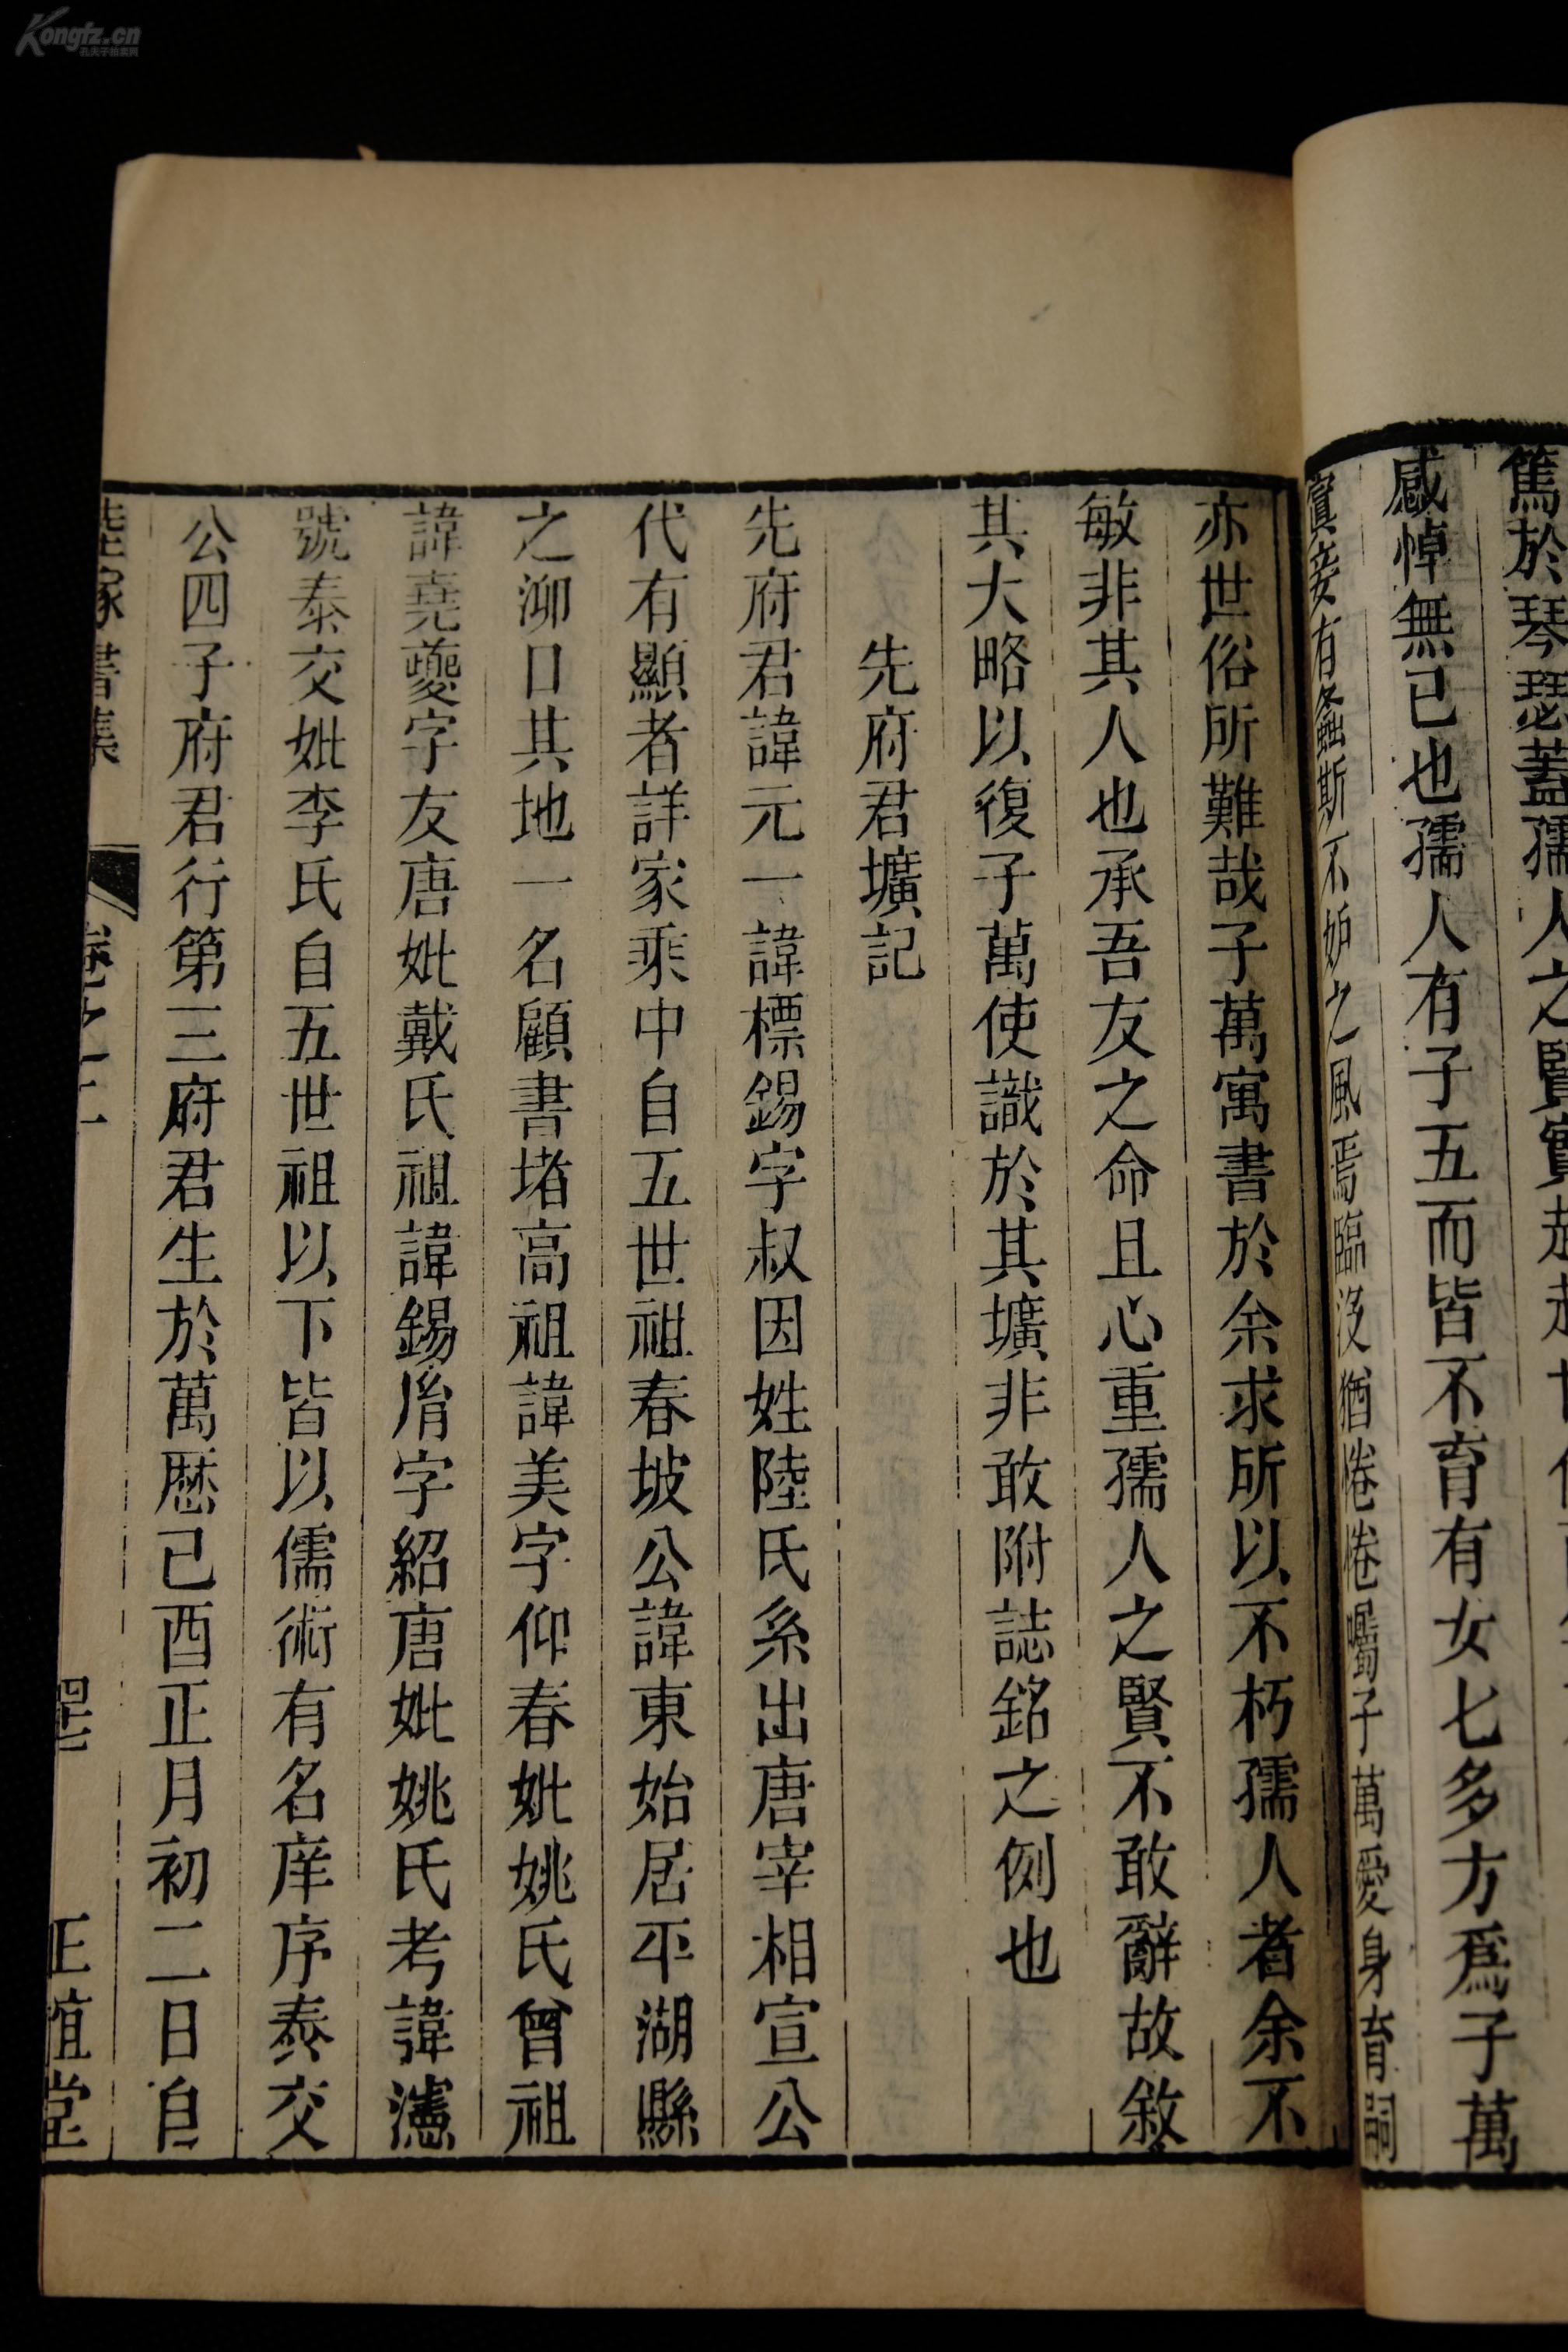 Kongfz.cn
孔夫子拍卖网
篤於琴瑟蓋孺人之賢實
感悼無已也孺人有子五而皆不育有女七多方爲子萬
寘妾有螽斯不妒之風焉臨沒猶惓惓囑子萬愛身育嗣
亦世俗所難哉子萬寓書於余求所以不朽孺人者余不
敏非其人也承吾友之命且心重孺人之賢不敢辭故敘
其大略以復子萬使識於其壙非敢附誌銘之例也
先府君壙記
先府君諱元一諱標錫字叔因姓陸氏系出唐宰相宣公
代有顯者詳家乘中自五世祖春坡公諱東始居平湖縣
之泖口其地一名顧書堵高祖諱美字仰春妣姚氏曾祖
諱堯夔字友唐妣戴氏祖諱錫胤字紹唐妣姚氏考諱瀗
號泰交妣李氏自五世祖以下皆以儒術有名庠序泰交
公四子府君行第三府君生於萬厯己酉正月初二日自
書集
卷之十一
正誼堂